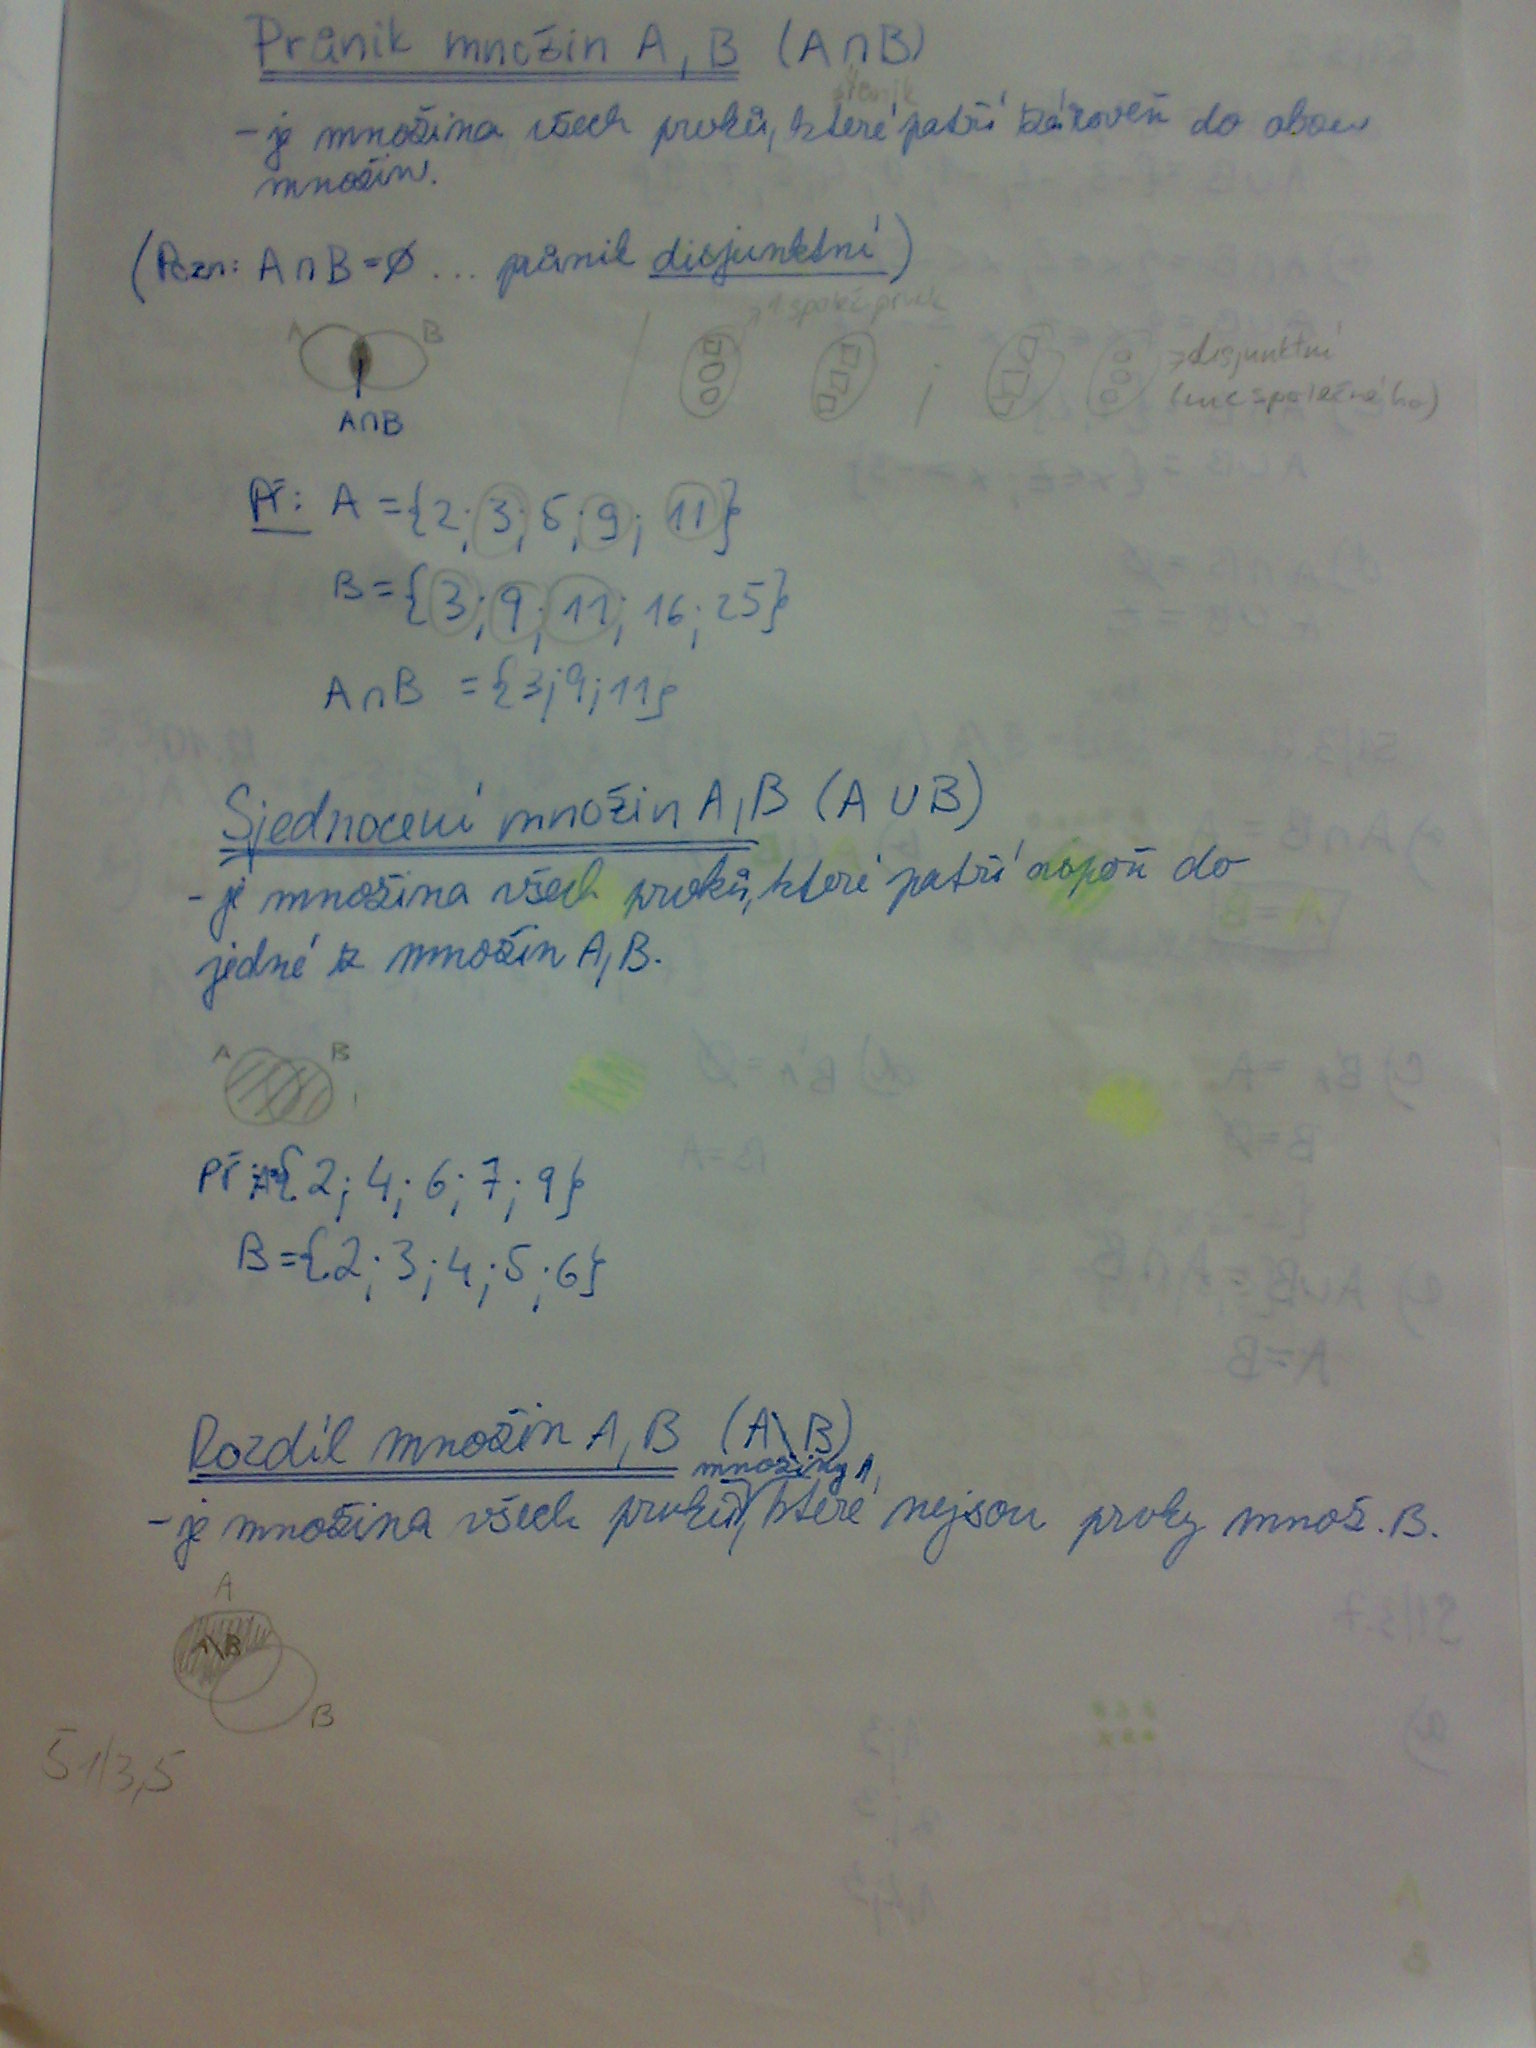 Průnik množin A, B (A∩B)
- je množina všech prvků, které patří zároveň do obou
množin.
(Pozn: A∩B=∅ ... průnik disjunktní)
1 společ. prvek
A B
A∩B
; → disjunktní
(nic společného)
Př: A = {2; 3; 5; 9; 11}
B = {3; 9; 11; 16; 25}
A∩B = {3; 9; 11}
Sjednocení množin A, B (A ∪ B)
- je množina všech prvků, které patří aspoň do
jedné z množin A, B.
A B
Př: A={2; 4; 6; 7; 9}
B={2; 3; 4; 5; 6}
Rozdíl množin A, B (A\B)
množiny A,
- je množina všech prvků, které nejsou prvky množ. B.
A
A\B
B
51/3,5